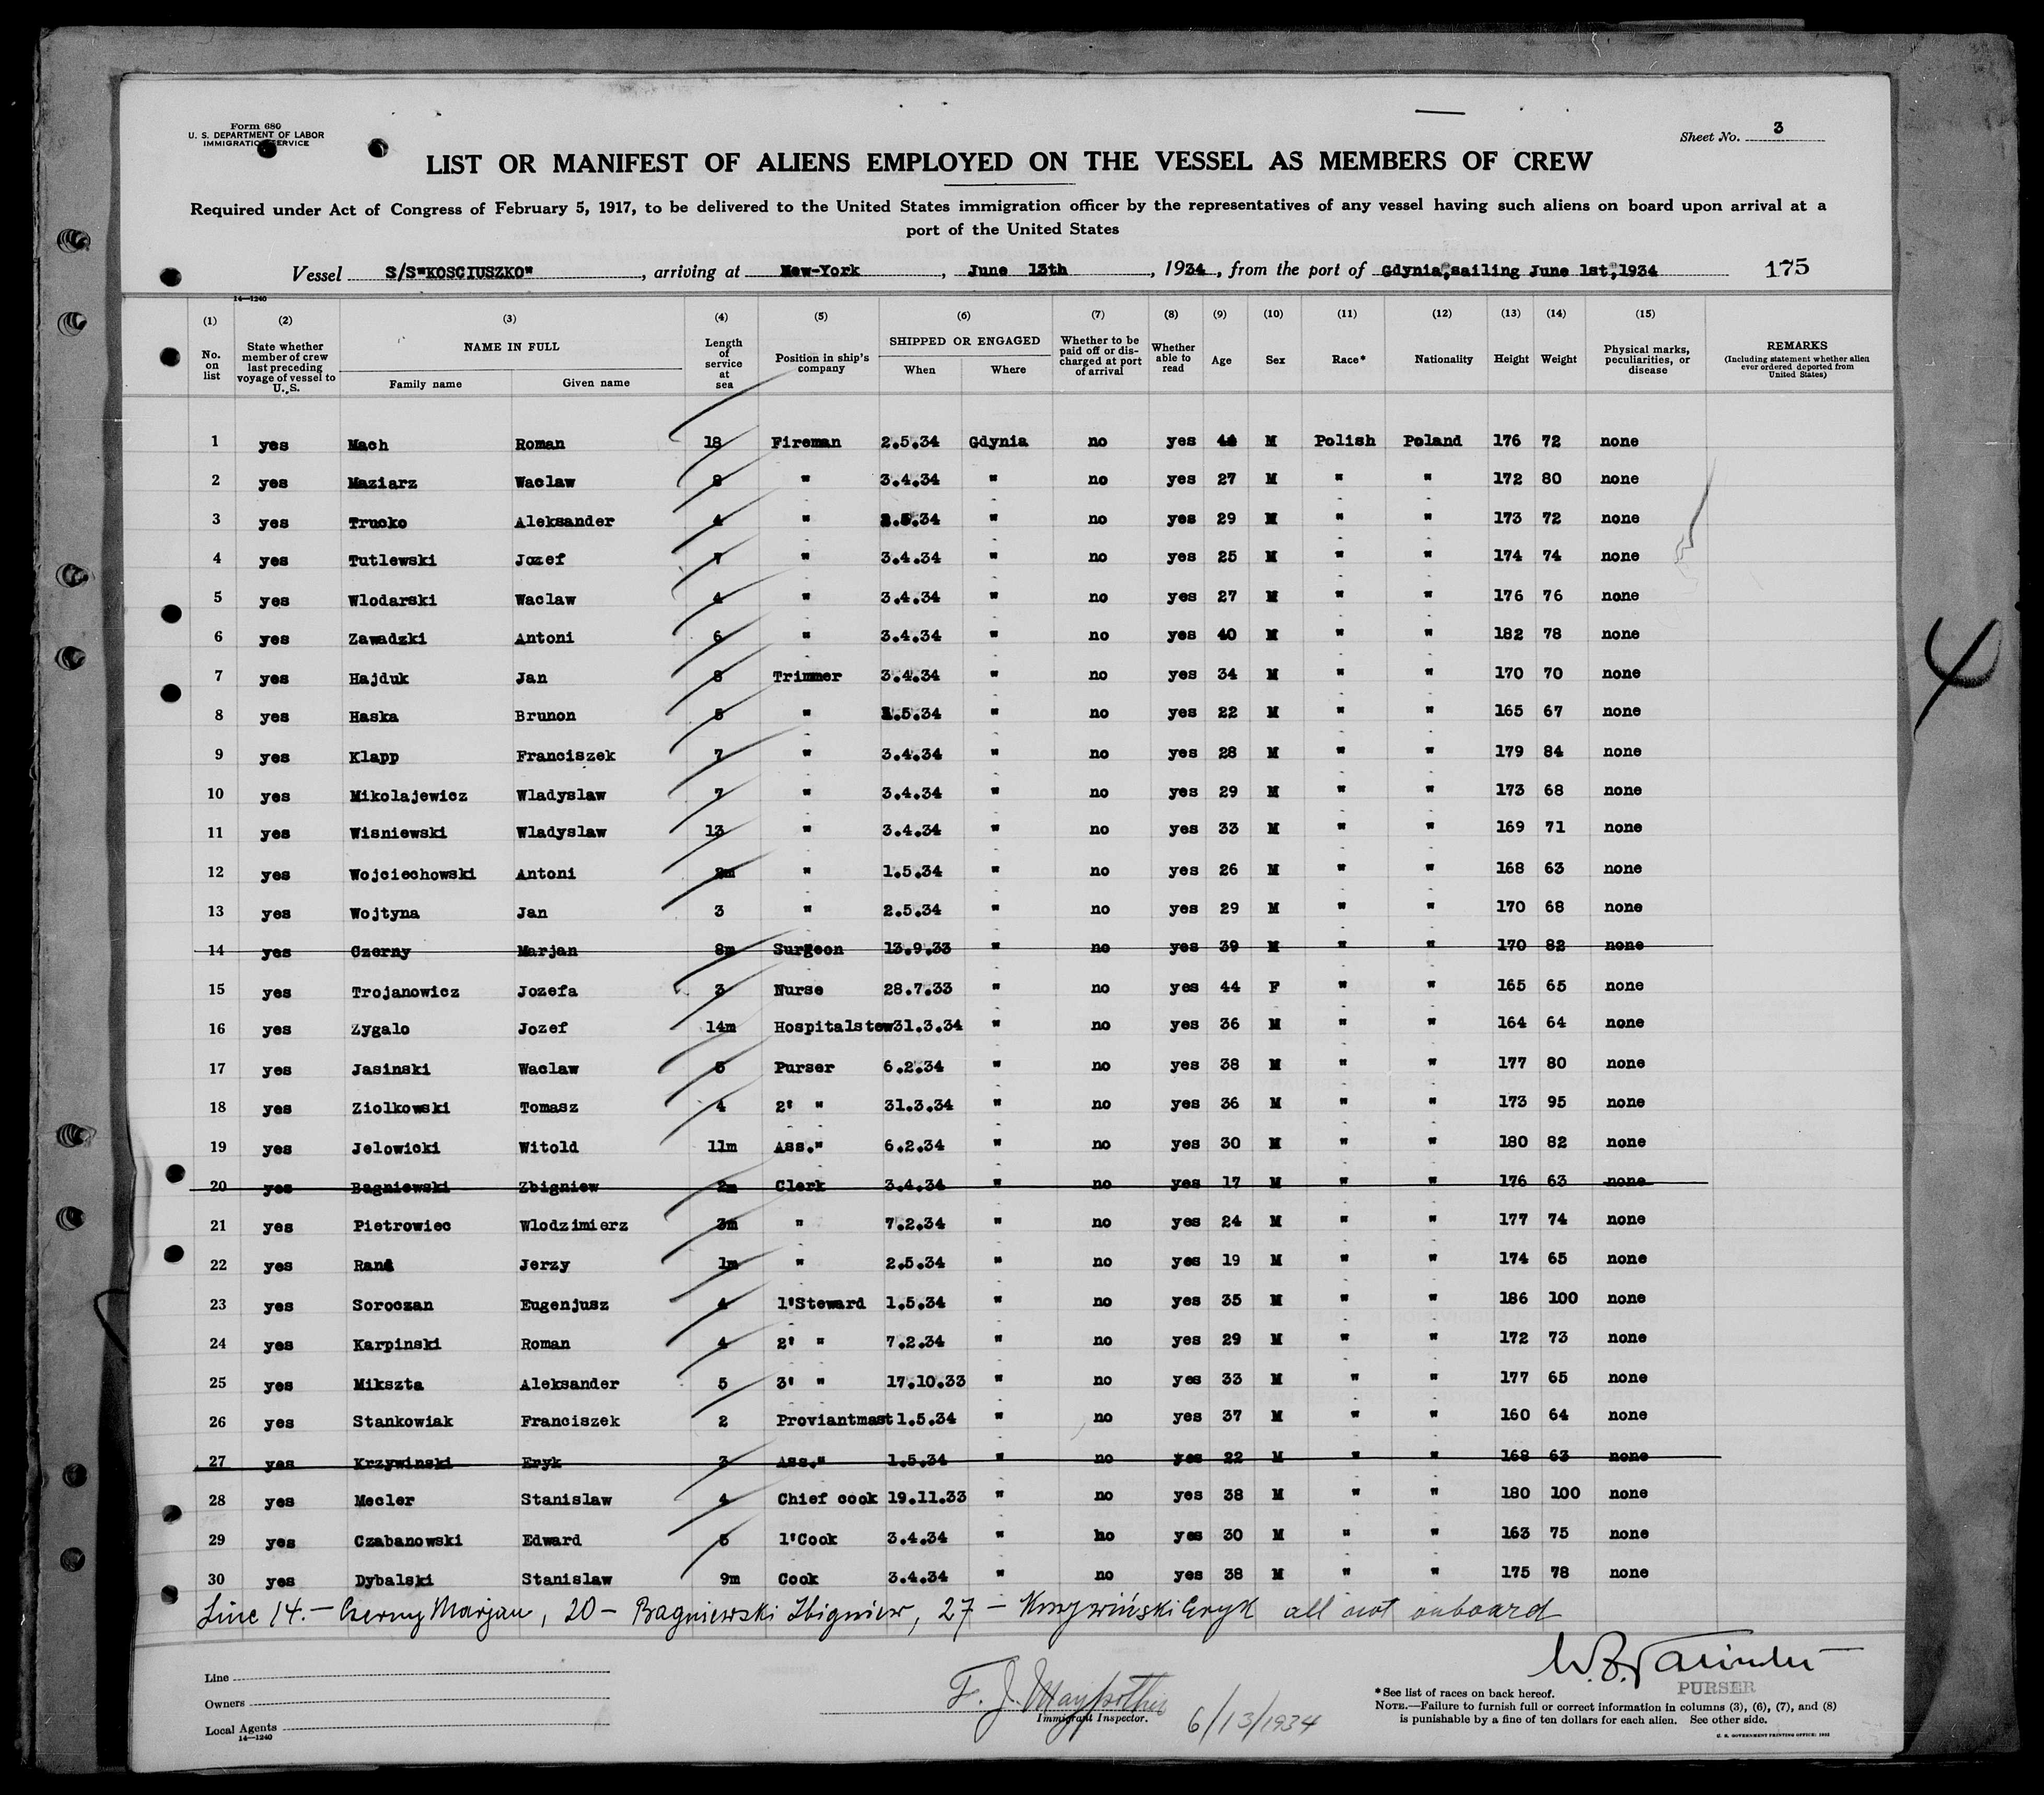 Form 680
U. S. DEPARTMENT OF LABOR
IMMIGRATION SERVICE
Sheet No. 3
LIST OR MANIFEST OF ALIENS EMPLOYED ON THE VESSEL AS MEMBERS OF CREW
Required under Act of Congress of February 5, 1917, to be delivered to the United States immigration officer by the representatives of any vessel having such aliens on board upon arrival at a
port of the United States
Vessel S/S"KOSCIUSZKO", arriving at New-York, June 13th, 1934, from the port of Gdynia,sailing June 1st,1934 175
14—1240
(1) (2) (3) (4) (5) (6) (7) (8) (9) (10) (11) (12) (13) (14) (15)
No. on list State whether member of crew last preceding voyage of vessel to U. S. NAME IN FULL Family name Given name Length of service at sea Position in ship's company SHIPPED OR ENGAGED When Where Whether to be paid off or discharged at port of arrival Whether able to read Age Sex Race* Nationality Height Weight Physical marks, peculiarities, or disease REMARKS (Including statement whether alien ever ordered deported from United States)
1 yes Mach Roman 18 Fireman 2.5.34 Gdynia no yes 44 M Polish Poland 176 72 none
2 yes Maziarz Waclaw 8 " 3.4.34 " no yes 27 M " " 172 80 none
3 yes Trucko Aleksander 4 " 2.5.34 " no yes 29 M " " 173 72 none
4 yes Tutlewski Jozef 7 " 3.4.34 " no yes 25 M " " 174 74 none
5 yes Wlodarski Waclaw 4 " 3.4.34 " no yes 27 M " " 176 76 none
6 yes Zawadzki Antoni 6 " 3.4.34 " no yes 40 M " " 182 78 none
7 yes Hajduk Jan 8 Trimmer 3.4.34 " no yes 34 M " " 170 70 none
8 yes Haska Brunon 5 " 2.5.34 " no yes 22 M " " 165 67 none
9 yes Klapp Franciszek 7 " 3.4.34 " no yes 28 M " " 179 84 none
10 yes Mikolajewicz Wladyslaw 7 " 3.4.34 " no yes 29 M " " 173 68 none
11 yes Wisniewski Wladyslaw 13 " 3.4.34 " no yes 33 M " " 169 71 none
12 yes Wojciechowski Antoni 2m " 1.5.34 " no yes 26 M " " 168 63 none
13 yes Wojtyna Jan 3 " 2.5.34 " no yes 29 M " " 170 68 none
14 yes Czerny Marjan 8m Surgeon 13.9.33 " no yes 39 M " " 170 82 none
15 yes Trojanowicz Jozefa 3 Nurse 28.7.33 " no yes 44 F " " 165 65 none
16 yes Zygalo Jozef 14m Hospitalstew 31.3.34 " no yes 36 M " " 164 64 none
17 yes Jasinski Waclaw 5 Purser 6.2.34 " no yes 38 M " " 177 80 none
18 yes Ziolkowski Tomasz 4 2' " 31.3.34 " no yes 36 M " " 173 95 none
19 yes Jelowicki Witold 11m Ass." 6.2.34 " no yes 30 M " " 180 82 none
20 yes Bagniewski Zbigniew 2m Clerk 3.4.34 " no yes 17 M " " 176 63 none
21 yes Pietrowiec Wlodzimierz 3m " 7.2.34 " no yes 24 M " " 177 74 none
22 yes Jerzy 1m " 2.5.34 " no yes 19 M " " 174 65 none
23 yes Soroczan Eugenjusz 4 1'Steward 1.5.34 " no yes 35 M " " 186 100 none
24 yes Karpinski Roman 4 2' " 7.2.34 " no yes 29 M " " 172 73 none
25 yes Mikszta Aleksander 5 3' " 17.10.33 " no yes 33 M " " 177 65 none
26 yes Stankowiak Franciszek 2 Proviantmast 1.5.34 " no yes 37 M " " 160 64 none
27 yes Krzywinski Eryk 3 Ass." 1.5.34 " no yes 22 M " " 168 63 none
28 yes Mecler Stanislaw 4 Chief cook 19.11.33 " no yes 38 M " " 180 100 none
29 yes Czabanowski Edward 5 1'Cook 3.4.34 " ho yes 30 M " " 163 75 none
30 yes Dybalski Stanislaw 9m Cook 3.4.34 " no yes 38 M " " 175 78 none
Line 14.— Czerny Marjan, 20 — Bagniewski Zbigniew, 27 — Krzywiński Eryk all not onboard
4
Line
Owners
Local Agents
14—1240
Immigrant Inspector. 6/13/1934
PURSER
*See list of races on back hereof.
NOTE.—Failure to furnish full or correct information in columns (3), (6), (7), and (8)
is punishable by a fine of ten dollars for each alien. See other side.
U. S. GOVERNMENT PRINTING OFFICE: 1932